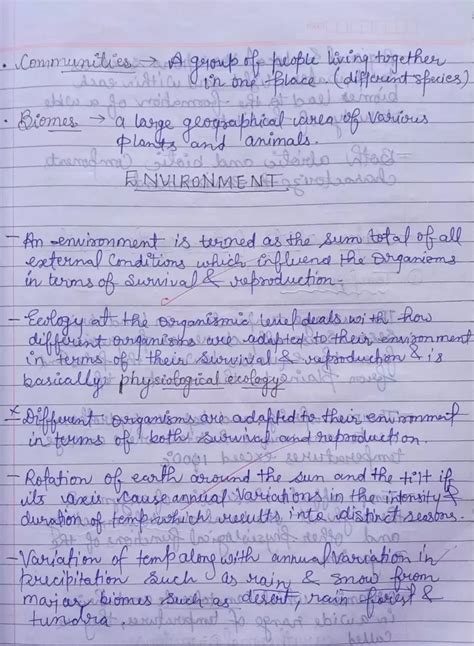 • Communities → A group of people living together
in one place (different species)
• Biomes → a large geographical area of various
plants and animals.
ENVIRONMENT
- An environment is termed as the sum total of all
external conditions which influend the organisms
in terms of survival & reproduction.
- Ecology at the organismic level deals with how
different organisms are adapted to their environment
in terms of their survival & reproduction & is
basically physiological ecology
* Different organisms are adapted to their environment
in terms of both survival and reproduction.
- Rotation of earth around the sun and the tilt if
its axis cause annual variations in the intensity &
duration of temp which results into distinct seasons.
- Variation of temp along with annual variation in
precipitation such as rain & snow from
major biomes such as desert, rain forest &
tundra.